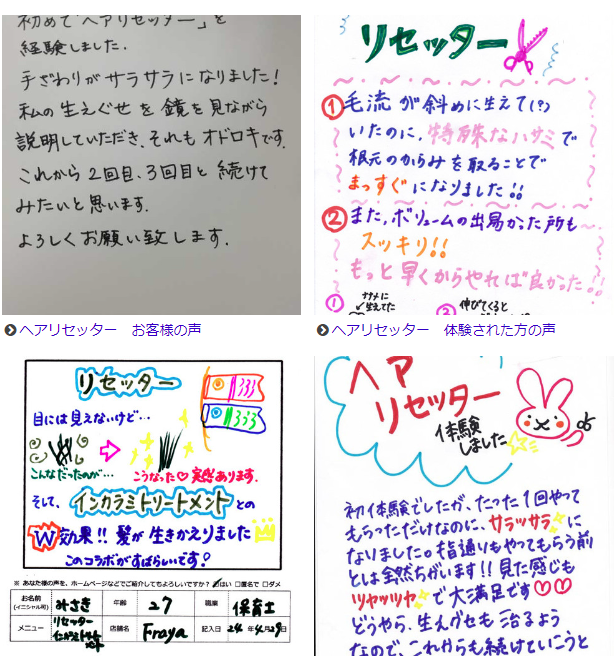 初めて「ヘアリセッター」を
経験しました.
手ざわりがサラサラになりました！
私の生えぐせを鏡を見ながら
説明していただき、それもオドロキです.
これから2回目、3回目と続けて
みたいと思います.
よろしくお願い致します.
ヘアリセッター　お客様の声
リセッター
① 毛流が斜めに生えて(?)
いたのに、特殊なハサミで
根元のからみを取ることで
まっすぐになりました!!
② また、ボリュームの出易かった所も
スッキリ!!
もっと早くからやれば良かった!!
① ナナメに
✓生えてた
③ 伸びてくると
ヘアリセッター　体験された方の声
リセッター
目には見えないけど…
こんなだったのが…
こうなった♡実感あります.
そして、インカラミトリートメントとの
W効果!! 髪が生きかえりました
このコラボがすばらしいです!
※ あなた様の声を、ホームページなどでご紹介してもよろしいですか？ ☑はい □匿名で □ダメ
お名前
(イニシャル可)
みさき
年齢
27
職業
保育士
メニュー
リセッター
インカラミトリートメント
店舗名
Fraya
記入日
24年4月29日
ヘア
リセッター
体験
しました
初体験でしたが、たった1回やって
もらっただけなのに、サラッサラに
なりました。指通りもやってもらう前
とは全然ちがいます!! 見た感じも
ツヤッツヤで大満足です♡♡
どうやら、生えグセも治るよう
なので、これからも続けていこうと